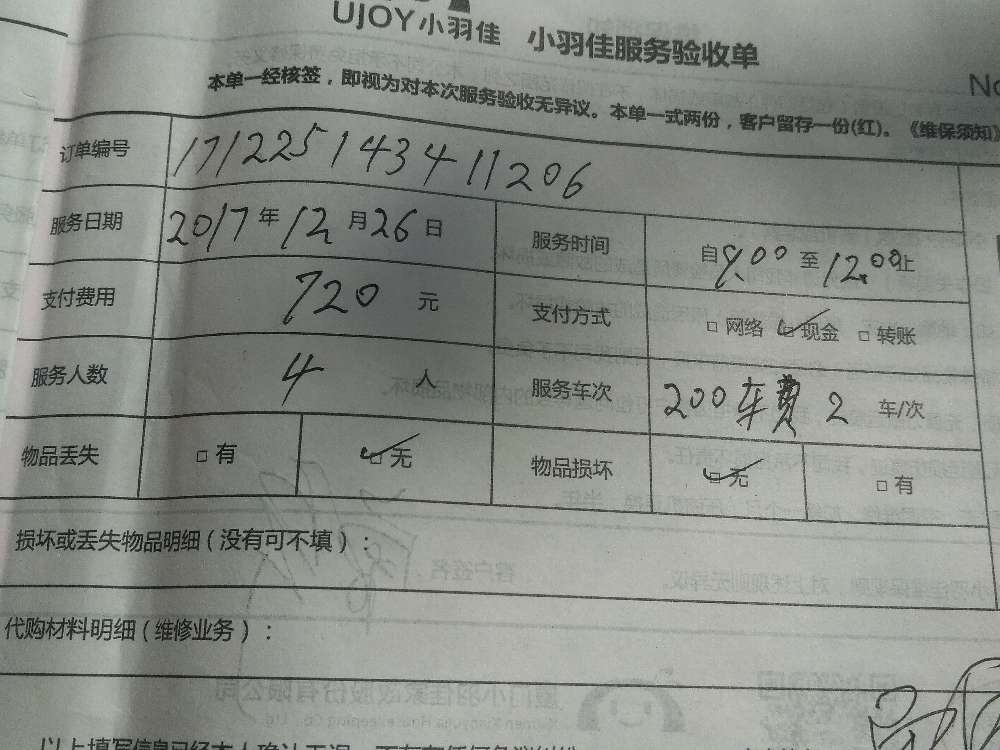 UJOY小羽佳 小羽佳服务验收单
No
本单一经核签，即视为对本次服务验收无异议。本单一式两份，客户留存一份(红)。《维保须知》
订单编号 17122514341 1206
服务日期 2017年12月26日 服务时间 自9.00至12.00止
支付费用 720 元 支付方式 □网络 ☑现金 □转账
服务人数 4 人 服务车次 200车费 2 车/次
物品丢失 □有 ☑无 物品损坏 ☑无 □有
损坏或丢失物品明细(没有可不填)：
代购材料明细(维修业务)：